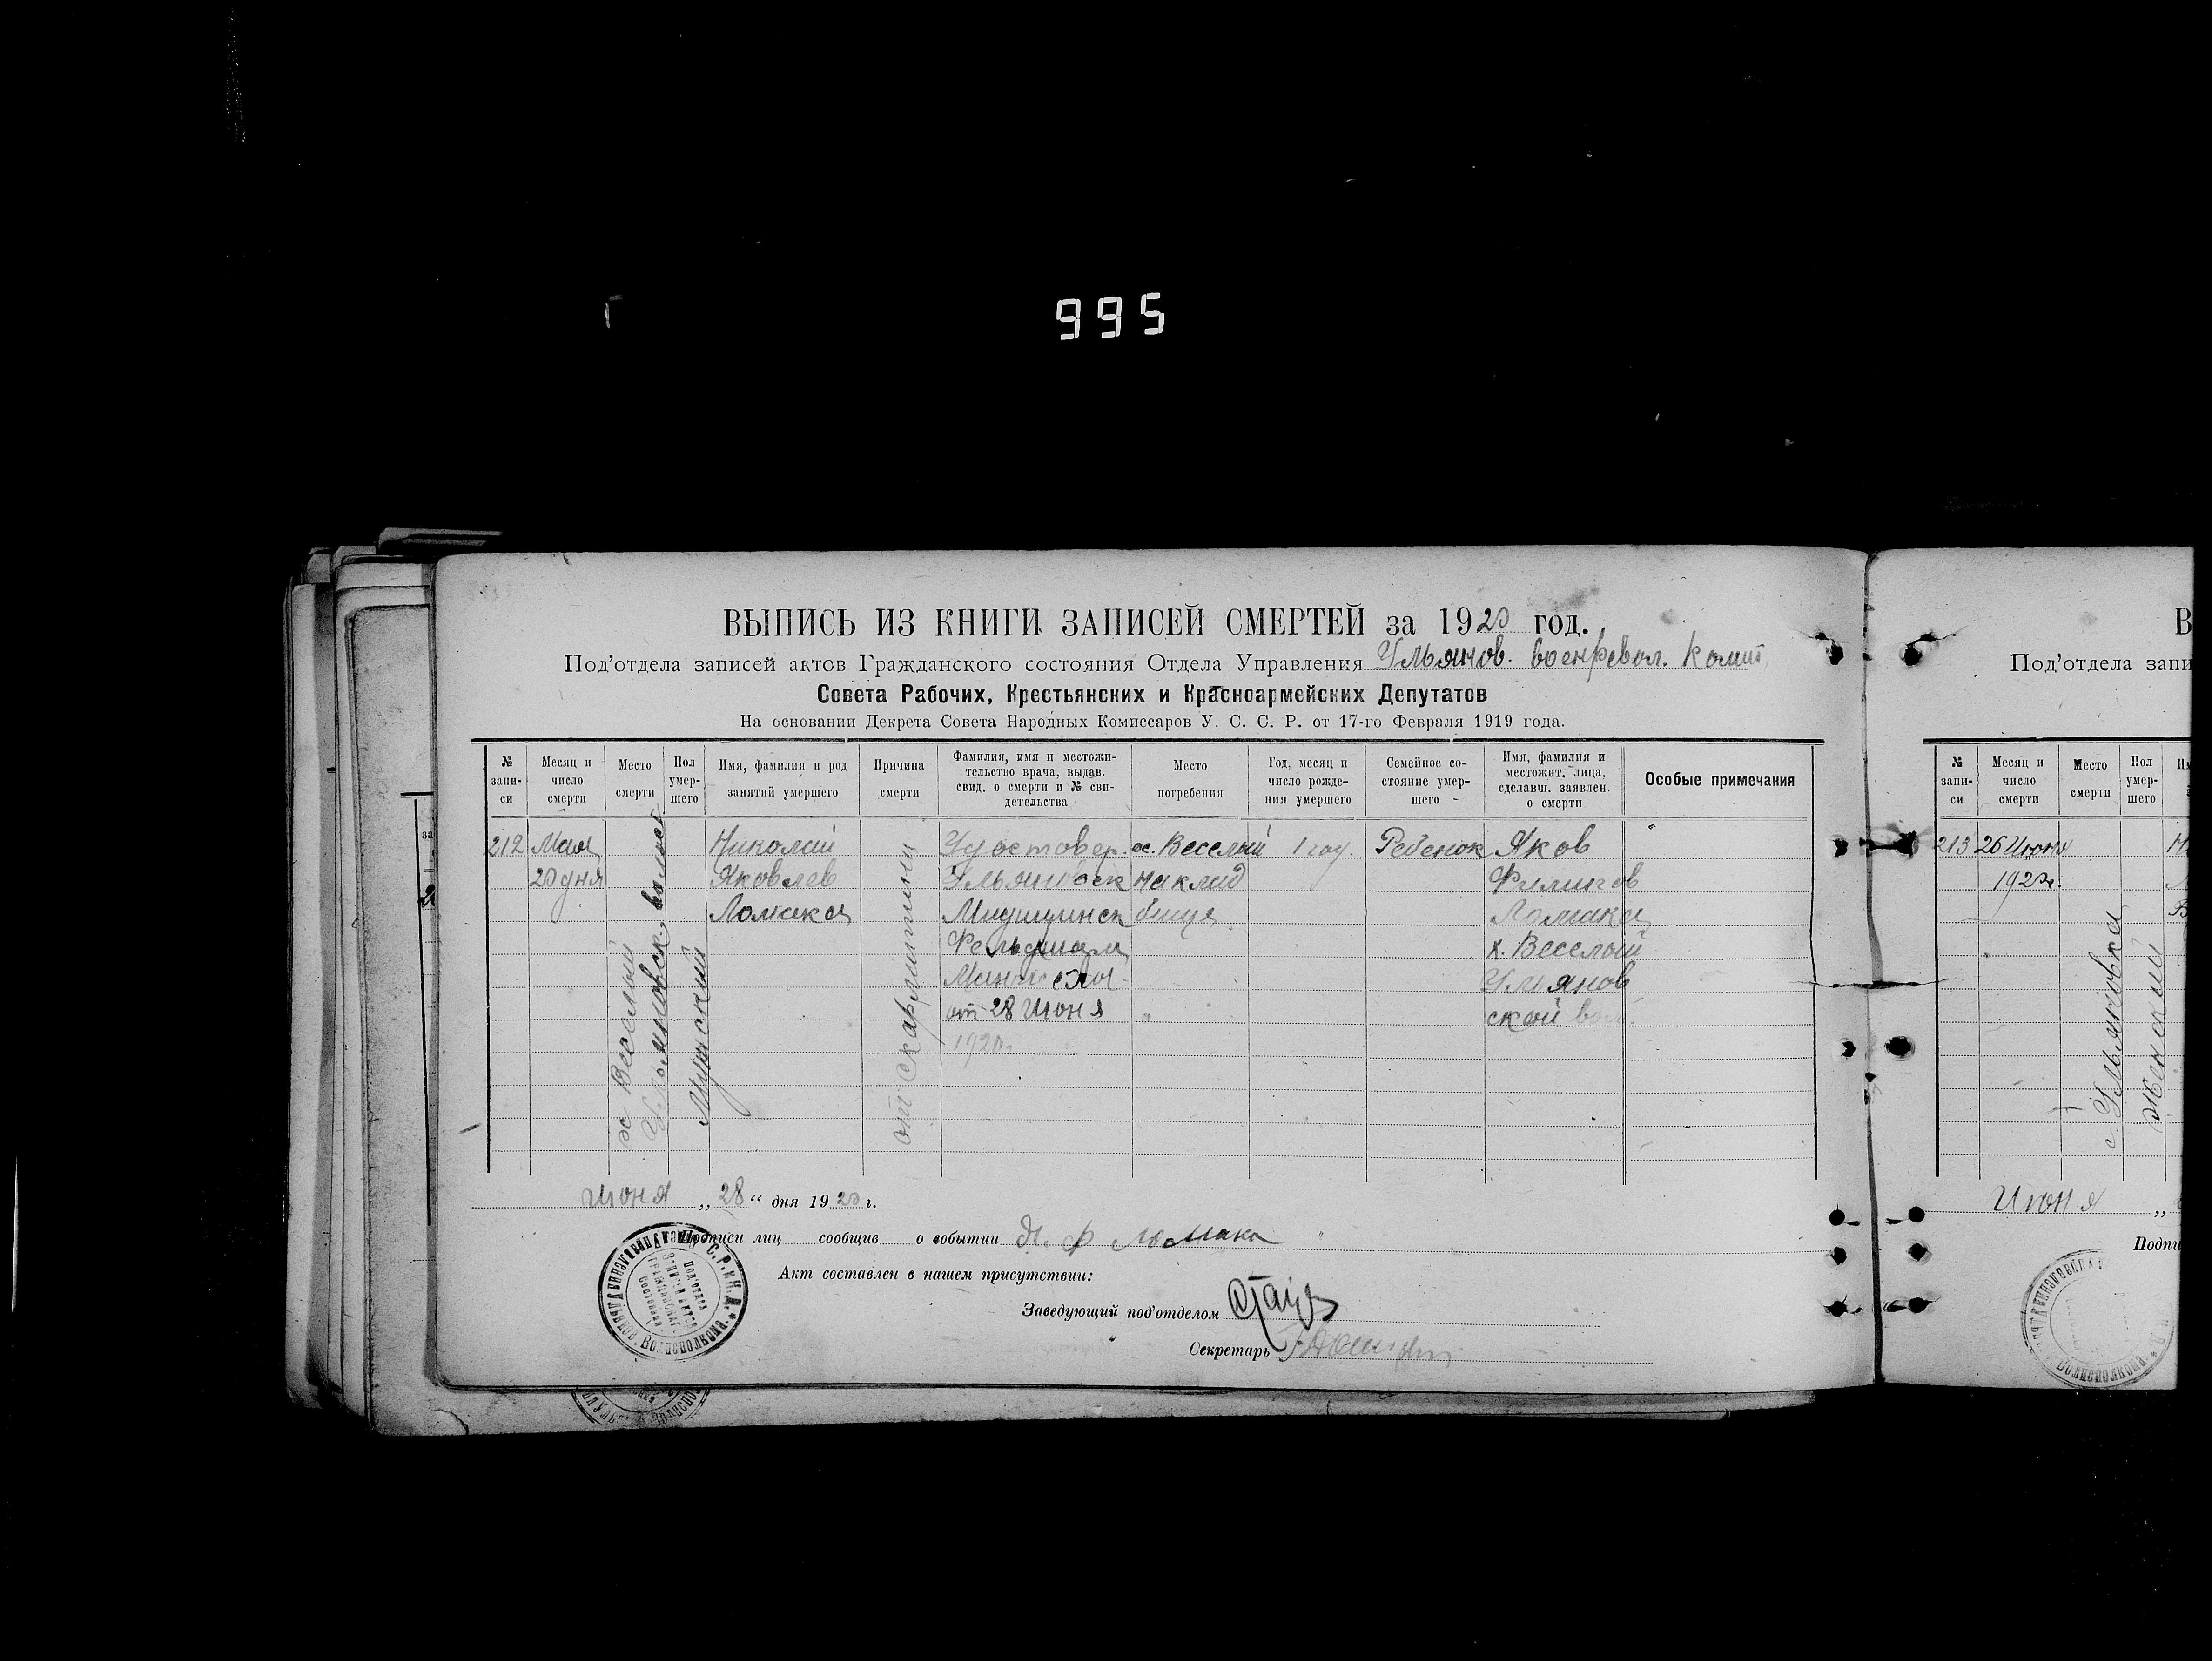 995
ВЫПИСЬ ИЗ КНИГИ ЗАПИСЕЙ СМЕРТЕЙ за 1920 год.
Под'отдела записей актов Гражданского состояния Отдела Управления Ульянов. военревол. Комит.
Совета Рабочих, Крестьянских и Красноармейских Депутатов
На основании Декрета Совета Народных Комиссаров У. С. С. Р. от 17-го Февраля 1919 года.
№ запи-
си
Месяц и
число
смерти
Место
смерти
Пол
умер-
шего
Имя, фамилия и род
занятий умершего
Причина
смерти
Фамилия, имя и местожи-
тельство врача, выдав.
свид. о смерти и № сви-
детельства
Место
погребения
Год, месяц и
число рожде-
ния умершего
Семейное со-
стояние умер-
шего
Имя, фамилия и
местожит. лица,
сделавш. заявлен.
о смерти
Особые примечания
212
Мая
20 дня
х Веселый
Ульяновск. волост
Мужской
Николай
Яковлев
Ломака
от скарлатины
Удостовер.
Ульяновск
Медицинск
Фельдшера
от 28 Июня
1920г
х. Веселый
на клад
бище
1 год.
Ребенок
Яков
Филипов
Ломака
х. Веселый
Ульянов
ской вол.
Июня „28“ дня 1920 г.
Подписи лиц сообщив о событии Я. Ф Ломака
Акт составлен в нашем присутствии:
Заведующий под'отделом
Секретарь
Подотдела
Записи актов
Гражданског
Состояния
Волисполкома
В
Под'отдела запи
№
запи-
си
Месяц и
число
смерти
Место
смерти
Пол
умер-
шего
213
26 Июня
1920г.
с. Ульяновка
Женский
Июня „
Подпи
Волисполкома